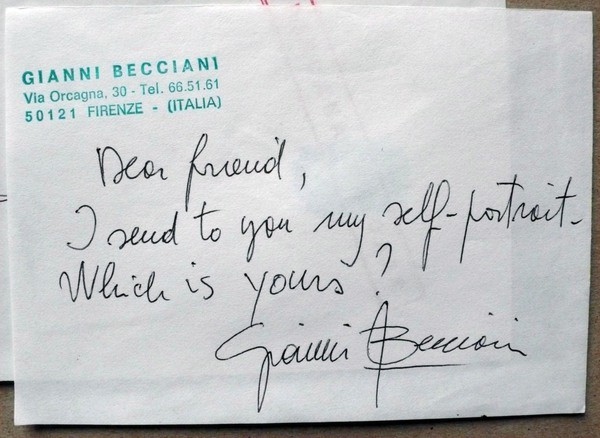 GIANNI BECCIANI
Via Orcagna, 30 - Tel. 66.51.61
50121 FIRENZE - (ITALIA)
Dear friend,
I send to you my self-portrait-
Which is yours?
Gianni Becciani